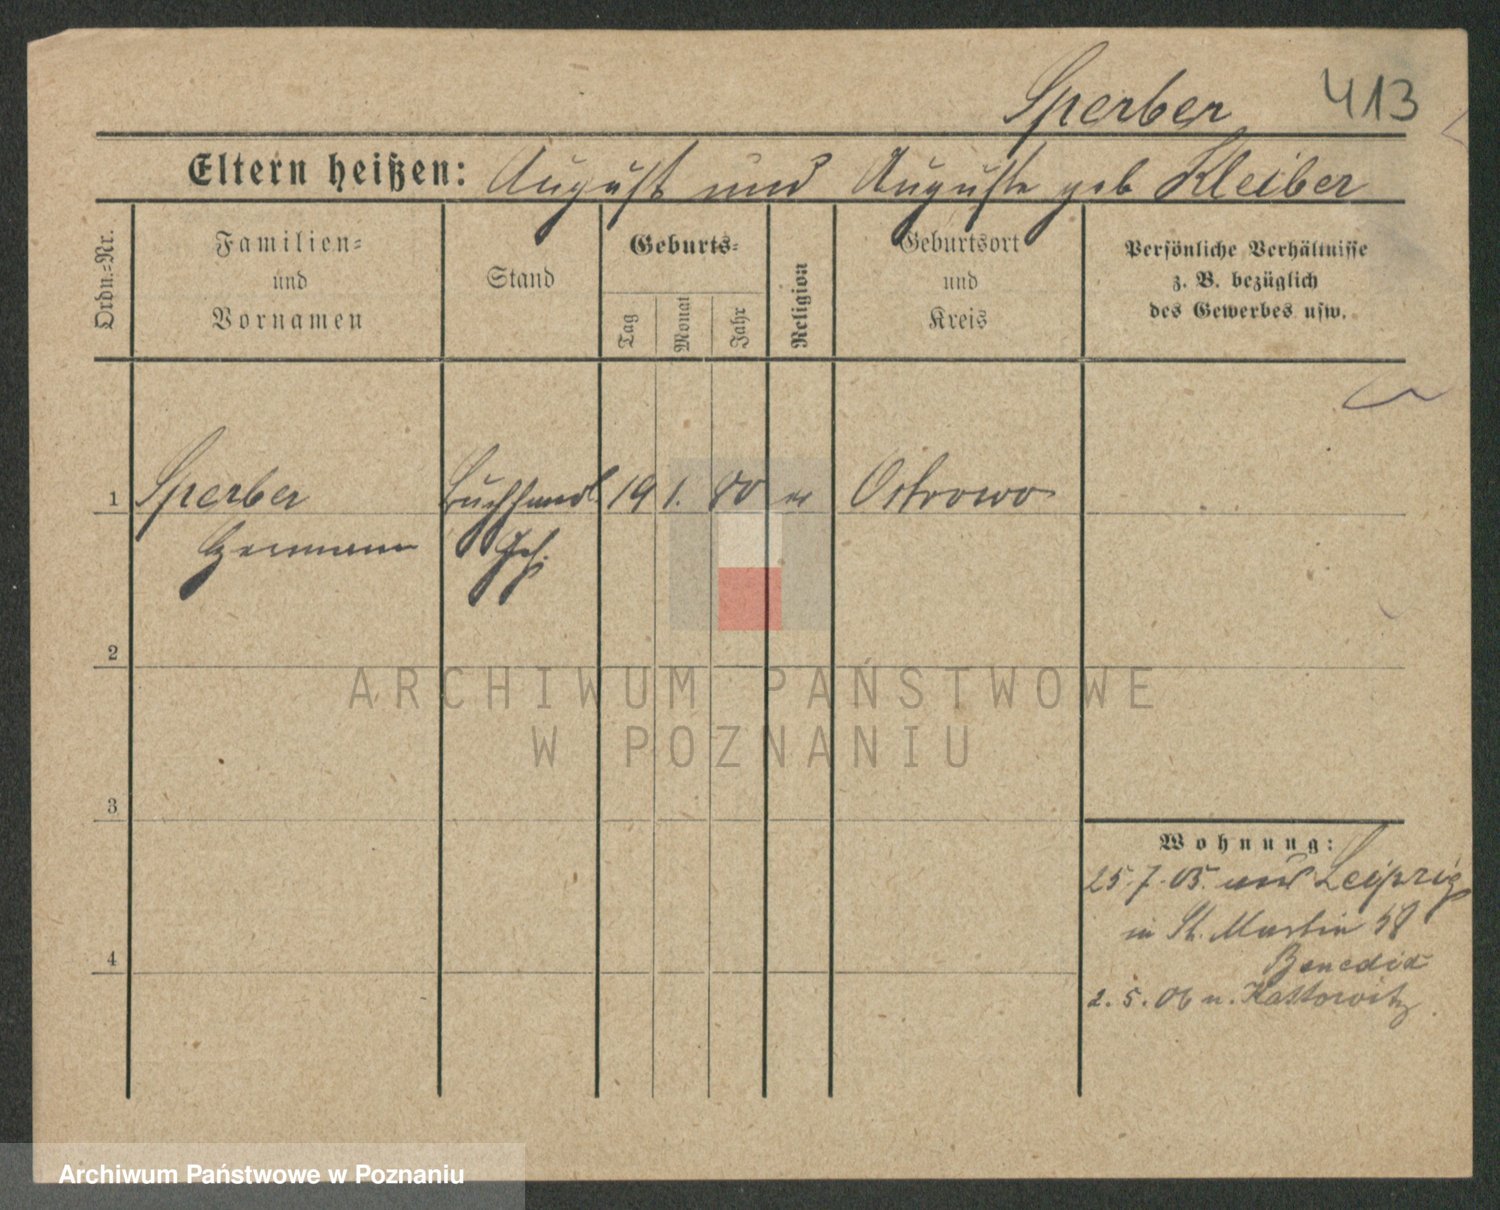 Sperber 413
Eltern heißen: August und Auguste geb Kleiber
Ordn.=Nr.
Familien=
und
Vornamen
Stand
Geburts=
Tag
Monat
Jahr
Religion
Geburtsort
und
Kreis
Persönliche Verhältnisse
z. B. bezüglich
des Gewerbes usw.
1 Sperber Buchhandl 19 1. 80 ev Ostrowo
Hermann Geh.
2
3
4
Wohnung:
25.7.05. aus Leipzig
in St. Martin 58
Benedix
2.5.06 n. Kattowitz
ARCHIWUM PAŃSTWOWE
W POZNANIU
Archiwum Państwowe w Poznaniu